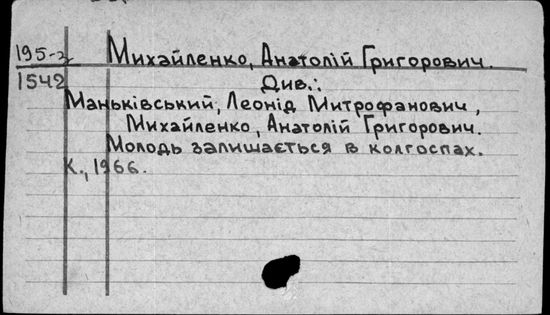 195-2 Михайленко, Анатолій Григорович.
1542 Див.:
Маньківський, Леонід Митрофанович,
Михайленко, Анатолій Григорович.
Молодь залишається в колгоспах.
К., 1966.